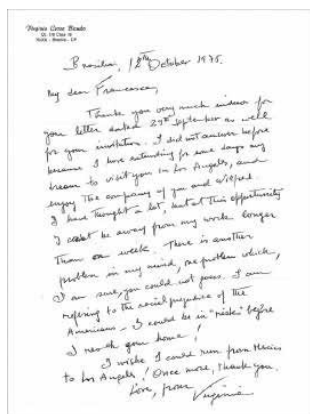 Virginia Costa
Brasília, 12th October 1975.
My dear Francesca,
Thank you very much indeed for
your letter dated 29th September as well
for your invitation. I did not answer before
because I was extending for some days my
dream to visit you in Los Angeles, and
enjoy the company of you and Wilfred.
I have thought a lot, but at this opportunity
I could not be away from my work longer
than one week. There is another
problem in my mind, one problem which,
I am sure, you could not guess. I am
refering to the racial prejudice of the
Americans. I could be in "risk" before
I reach your home!
I wish I could run from Mexico
to Los Angeles! Once more, thank you.
Love, from Virginia